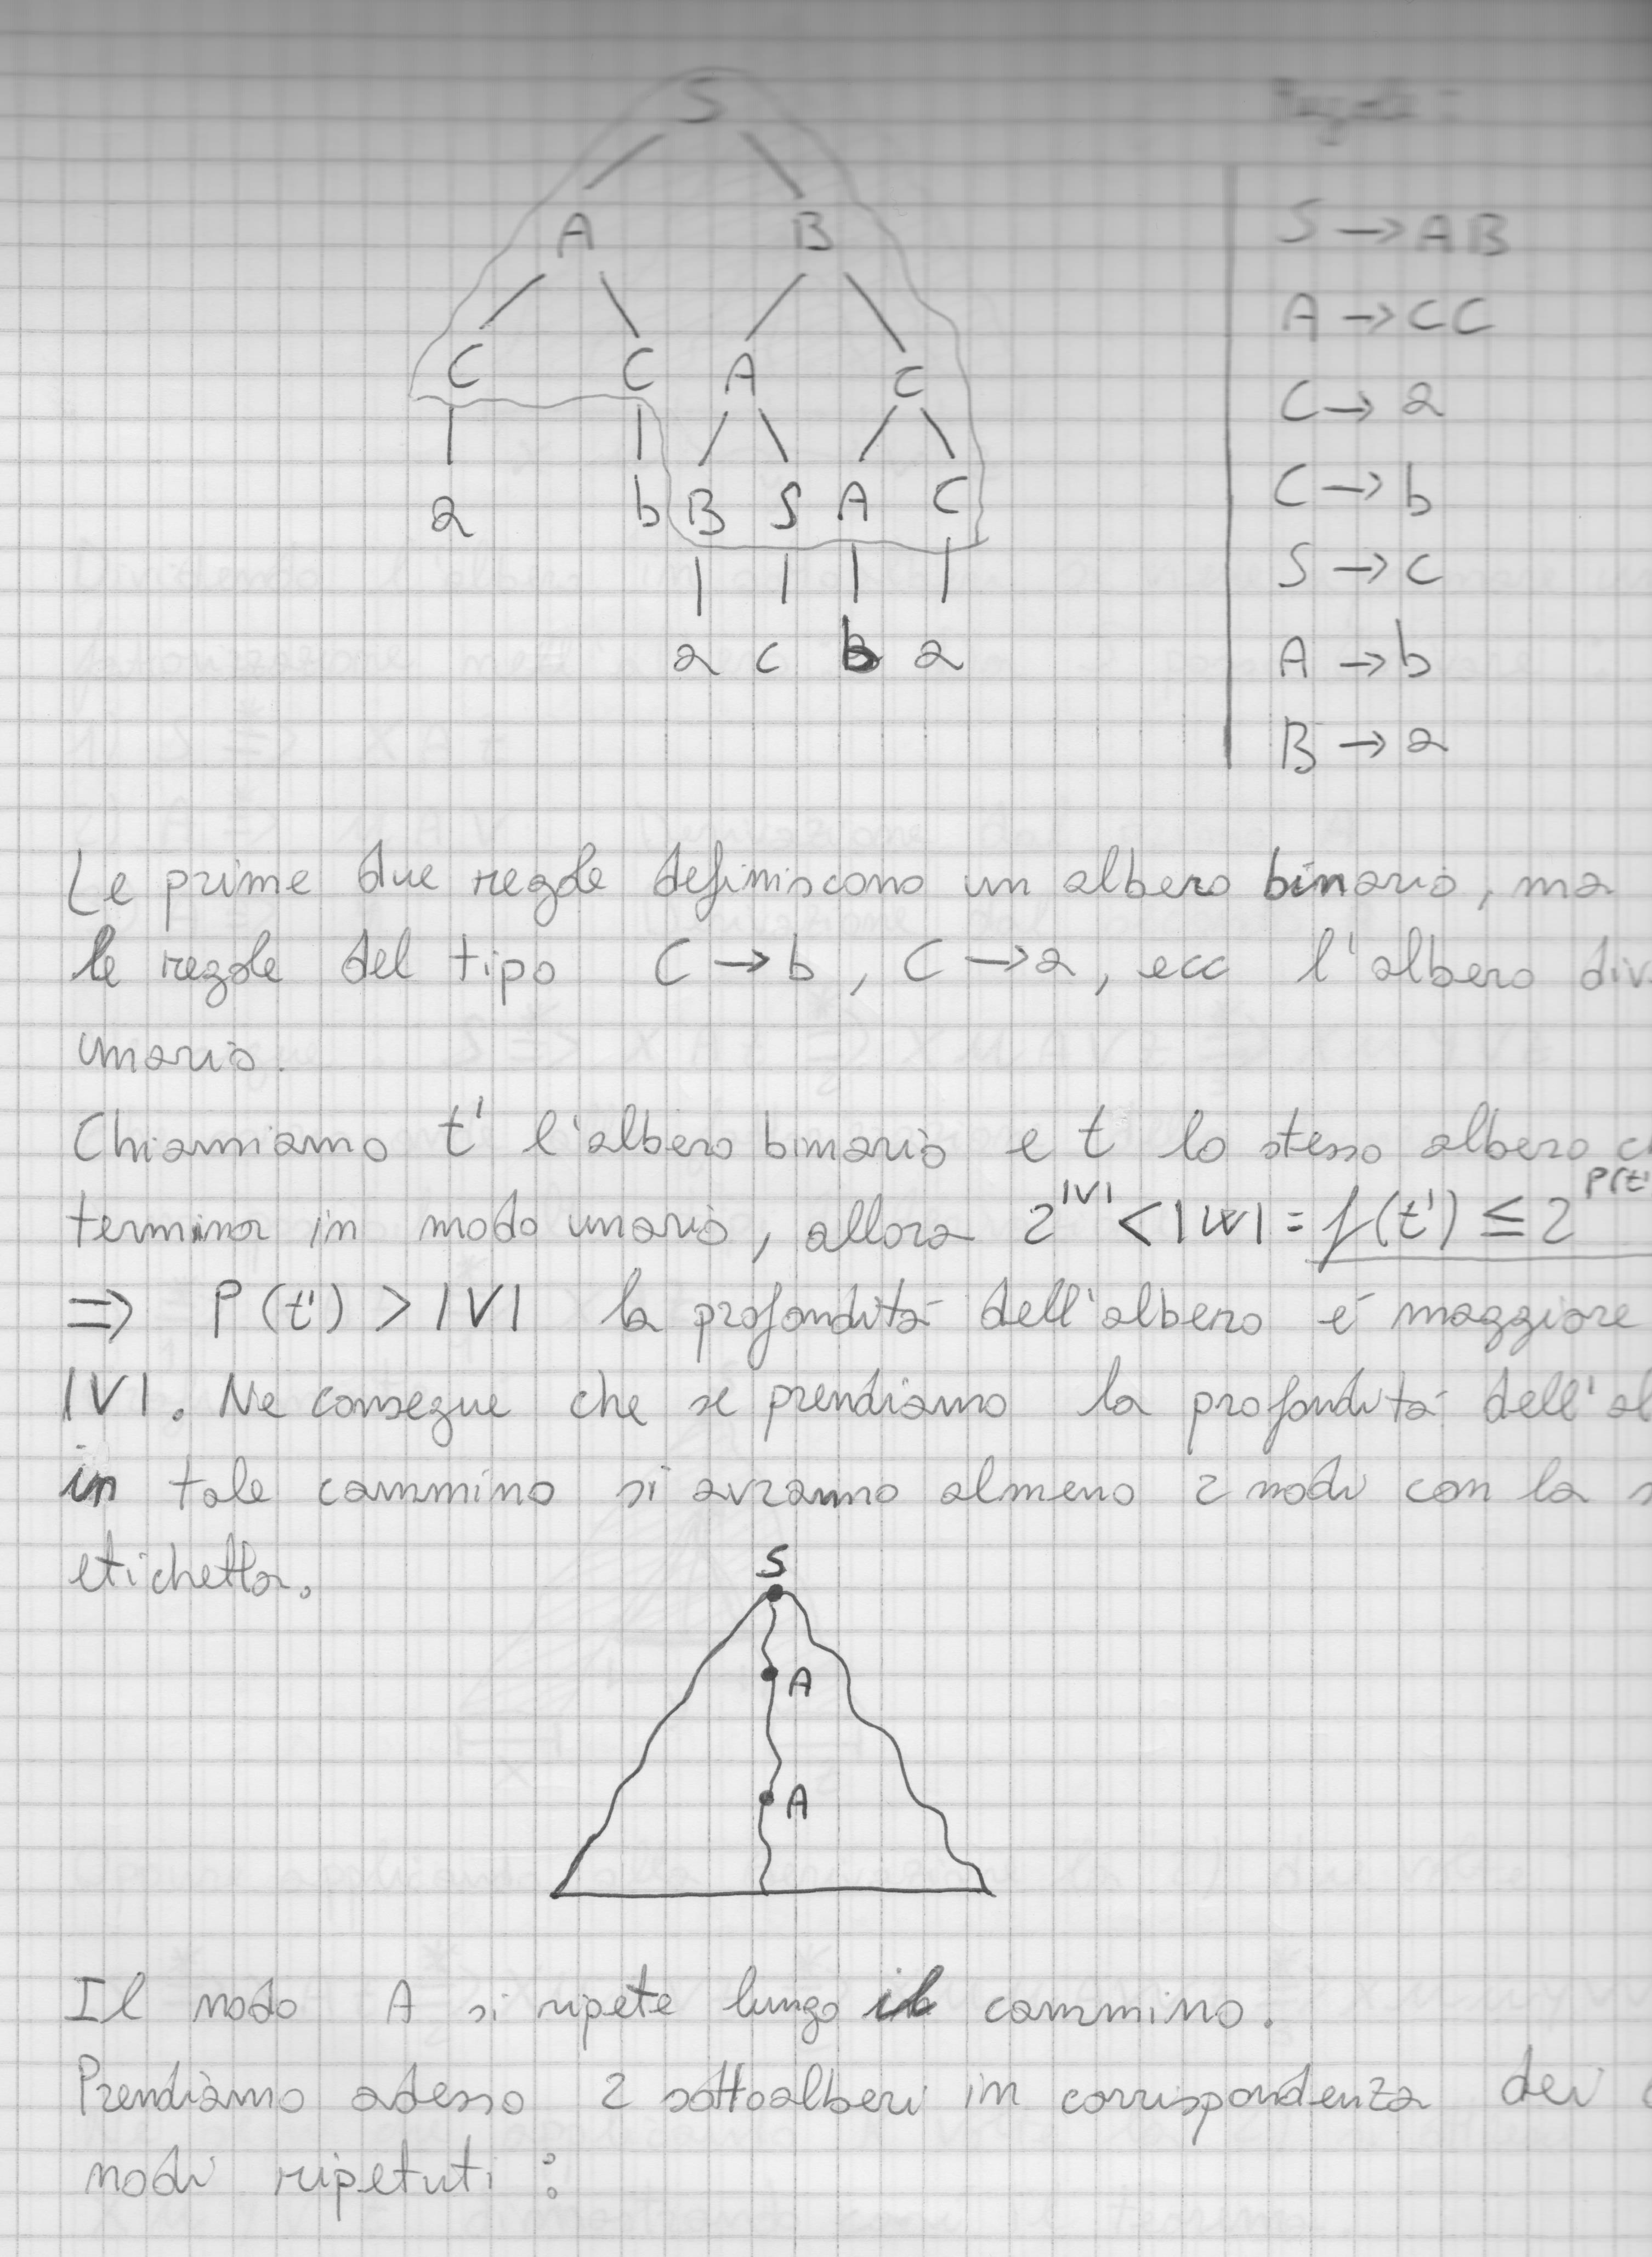 S
Regole:
A B
S → AB
A → CC
C C A C
C → a
a b B S A C
C → b
S → c
a c b a
A → b
B → a
Le prime due regole definiscono un albero binario, ma
le regole del tipo C → b, C → a, ecc l'albero div
unario.
Chiamiamo t' l'albero binario e t lo stesso albero c
termina in modo unario, allora 2^|V| < |W| = f(t') ≤ 2^P(t'
⇒ P(t') > |V| la profondità dell'albero é maggiore
|V|. Ne consegue che se prendiamo la profondità dell'al
in tale cammino si avranno almeno 2 nodi con la s
etichetta.
S
A
A
Il nodo A si ripete lungo il cammino.
Prendiamo adesso 2 sottoalberi in corrispondenza dei
nodi ripetuti: